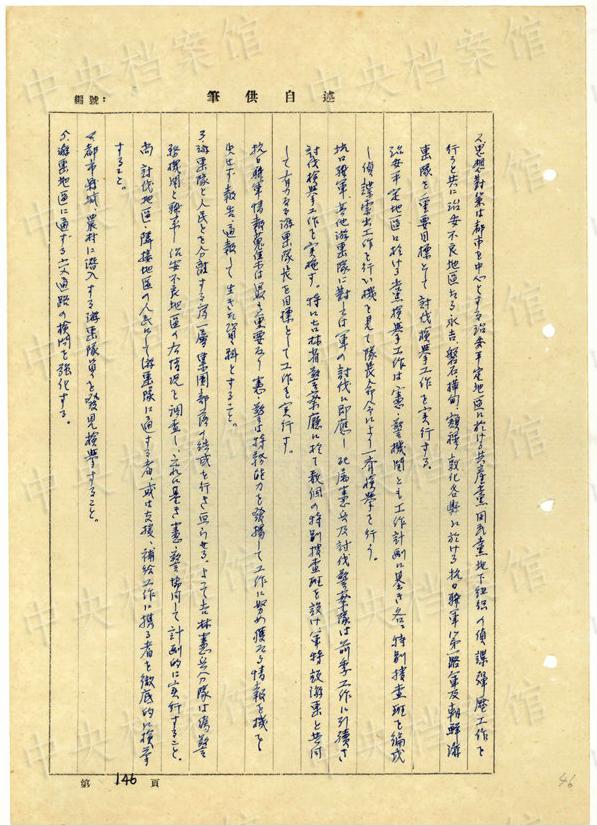 編號：
筆供自述
又思想対策は都市を中心とする治安平定地区に於ける共産党国民党地下組織の偵諜弾圧工作を
行ると共に治安不良地区たる永吉、磐石、樺甸、額穆、敦化各県に於ける抗日聯軍第一路軍及朝鮮游
撃隊を重要目標として討伐検挙工作を実行する。
治安平定地区に於ける党検挙工作は憲、警機関とも工作計画に基き各、特別捜査班を編成
し偵諜索出工作を行い機を見て隊長命令により一斉検挙を行う。
抗日聯軍、其他游撃隊に対しては軍の討伐に即応し配属憲兵及討伐警察隊は前季工作に引續き
討伐検挙工作を実施す。特に吉林省警察廳に於て数個の特別捜査班を設け、軍特設游撃と共同
して有力なる游撃隊長を目標として工作を実行す。
抗日聯軍情報蒐集は最も重要なり、憲、警は特務能力を發揚して工作に努め獲たる情報を機を
失せず報告、通報して生きた資料とすること。
游撃隊と人民とを分離する為一層集團部落の結成を行き亘らせる。よって吉林憲兵分隊は偽警
務機関と聯絡し治安不良地区の右情況を調査し、之れに基き憲、警協同して計画的に実行すること。
尚討伐地区、隣接地区の人民にして游撃隊に通ずる者、或は支援、補給工作に携る者を徹底的に検挙
すること。
都市、県城、農村に潜入する游撃隊員を發見検挙すること。
游撃地区に通ずる交通路の検問を強化する。
第 146 頁
46
中央档案馆